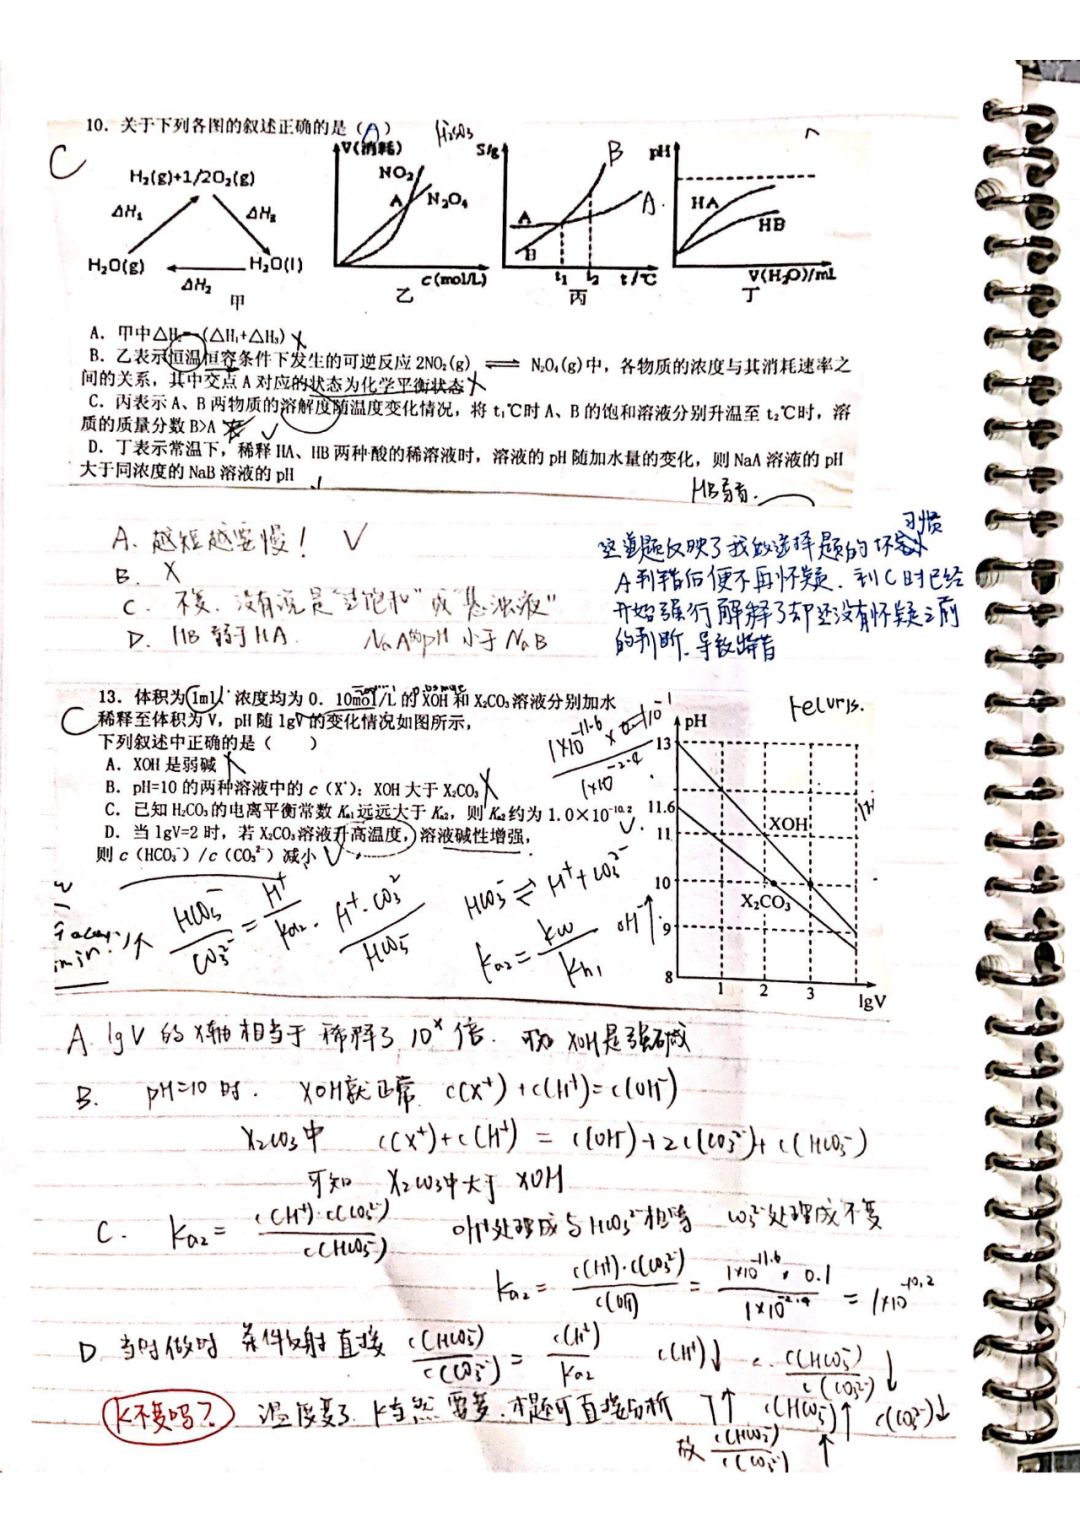 10. 关于下列各图的叙述正确的是（A）
H₂SO₃
C
H₂(g)+1/2O₂(g)
ΔH₁
ΔH₃
H₂O(g)
H₂O(l)
ΔH₂
甲
V(消耗)
NO₂
A
N₂O₄
c(mol/L)
乙
S/g
B
A
A
B
t₁ t₂ t/℃
丙
pH
HA
HB
V(H₂O)/mL
丁
A. 甲中△H₂=-(△H₁+△H₃) ×
B. 乙表示恒温恒容条件下发生的可逆反应 2NO₂(g) ⇌ N₂O₄(g)中，各物质的浓度与其消耗速率之
间的关系，其中交点 A 对应的状态为化学平衡状态 ×
C. 丙表示 A、B 两物质的溶解度随温度变化情况，将 t₁℃时 A、B 的饱和溶液分别升温至 t₂℃时，溶
质的质量分数 B>A √
D. 丁表示常温下，稀释 HA、HB 两种酸的稀溶液时，溶液的 pH 随加水量的变化，则 NaA 溶液的 pH
大于同浓度的 NaB 溶液的 pH
HB弱者.
A. 越短越要慢！ √
B. ×
C. 不变. 没有说是"过饱和"或"悬浊液"
D. HB 弱于HA. NaA的pH 小于 NaB
这道题反映了我做选择题的坏习惯
A判错后便不再怀疑. 到C时已经
开始强行解释了却还没有怀疑之前
的判断. 导致错
C
13. 体积为 1mL 浓度均为 0. 10mol/L 的 XOH 和 X₂CO₃ 溶液分别加水
稀释至体积为 V，pH 随 lgV 的变化情况如图所示，
下列叙述中正确的是（ ）
A. XOH 是弱碱 ×
B. pH=10 的两种溶液中的 c（X⁺）：XOH 大于 X₂CO₃ ×
C. 已知 H₂CO₃ 的电离平衡常数 Kₐ₁ 远远大于 Kₐ₂，则 Kₐ₂ 约为 1.0×10⁻¹⁰·² √
D. 当 lgV=2 时，若 X₂CO₃ 溶液升高温度，溶液碱性增强，
则 c（HCO₃⁻）/c（CO₃²⁻）减小 √
1×10⁻¹¹·⁶ × 10⁻¹
1×10⁻²·⁴
pH
13
11.6
11
10
9
8
XOH
X₂CO₃
1 2 3 lgV
HCO₃⁻/CO₃²⁻ = H⁺/Ka₂. H⁺·CO₃²⁻/HCO₃⁻
HCO₃⁻ ⇌ H⁺+CO₃²⁻
Ka₂= Kw/Kh₁ OH⁻↑
A. lgV 的 X轴相当于稀释了 10ˣ 倍. 可知 XOH是强碱
B. pH=10 时. XOH就正常 c(X⁺)+c(H⁺)=c(OH⁻)
X₂CO₃中 c(X⁺)+c(H⁺) = c(OH⁻)+2c(CO₃²⁻)+c(HCO₃⁻)
可知 X₂CO₃中大于 XOH
C. Ka₂= c(H⁺)·c(CO₃²⁻)/c(HCO₃⁻) OH⁻处理成与HCO₃⁻相等 CO₃²⁻处理成不变
Ka₂= c(H⁺)·c(CO₃²⁻)/c(OH⁻) = 1×10⁻¹¹·⁶·0.1/1×10⁻²·⁴ = 1×10⁻¹⁰·²
D. 当时做时 条件反射直接 c(HCO₃⁻)/c(CO₃²⁻) = c(H⁺)/Ka₂ c(H⁺)↓ ∴ c(HCO₃⁻)/c(CO₃²⁻)↓
K不变吗？ 温度变了 K当然要变. 本题可直接分析 T↑ c(HCO₃⁻)↑ c(CO₃²⁻)↓
故 c(HCO₃⁻)/c(CO₃²⁻) ↑